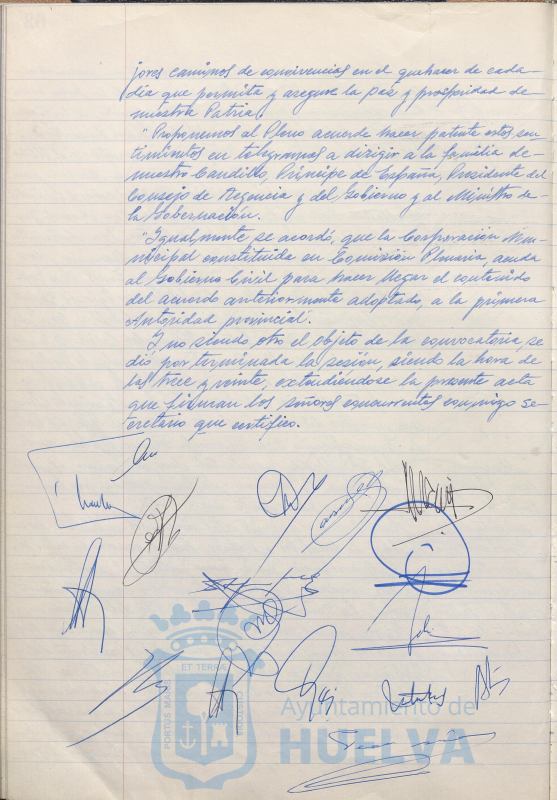 jores caminos de convivencias en el quehacer de cada
día que permita y asegure la paz y prosperidad de
nuestra Patria.
"Proponemos al Pleno acuerde hacer patente estos sen-
timientos en telegramas a dirigir a la familia de
nuestro Caudillo, Príncipe de España, Presidente del
Consejo de Regencia y del Gobierno y al Ministro de
la Gobernación.
"Igualmente, se acordó, que la Corporación Mu-
nicipal constituida en Comisión Plenaria, acuda
al Gobierno Civil para hacer llegar el contenido
del acuerdo anteriormente adoptado, a la primera
Autoridad provincial.
Y no siendo otro el objeto de la convocatoria, se
dió por terminada la sesión, siendo la hora de
las trece y veinte, extendiéndose la presente acta
que firman los señores concurrentes conmigo se-
cretario que certifico.
ET TERRAE
PORTUS MARIS
CUSTODIA
Ayuntamiento de
HUELVA